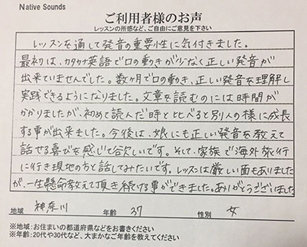 Native Sounds
ご利用者様のお声
レッスンの感想など、ご自由にご意見を下さい
レッスンを通して発音の重要性に気付きました。
最初は、カタカナ英語で口の動きが少なく正しい発音が
出来ていませんでした。数ヶ月で口の動き、正しい発音を理解し
実践できるようになりました。文章を読むのには時間が
かかりましたが、初めて読んだ時と比べると別人の様に成長
する事が出来ました。今後は、娘にも正しい発音を教えて
話せる喜びを感じて欲しいです。そして、家族で海外旅行
に行き現地の方と話してみたいです。レッスンは厳しい面もありました
が、一生懸命教えて頂き続ける事ができました。ありがとうございました
地域 神奈川 年齢 37 性別 女
※地域:お住まいの都道府県などをお書きください
※年齢:20代や30代など、大まかなご年齢を教えてください